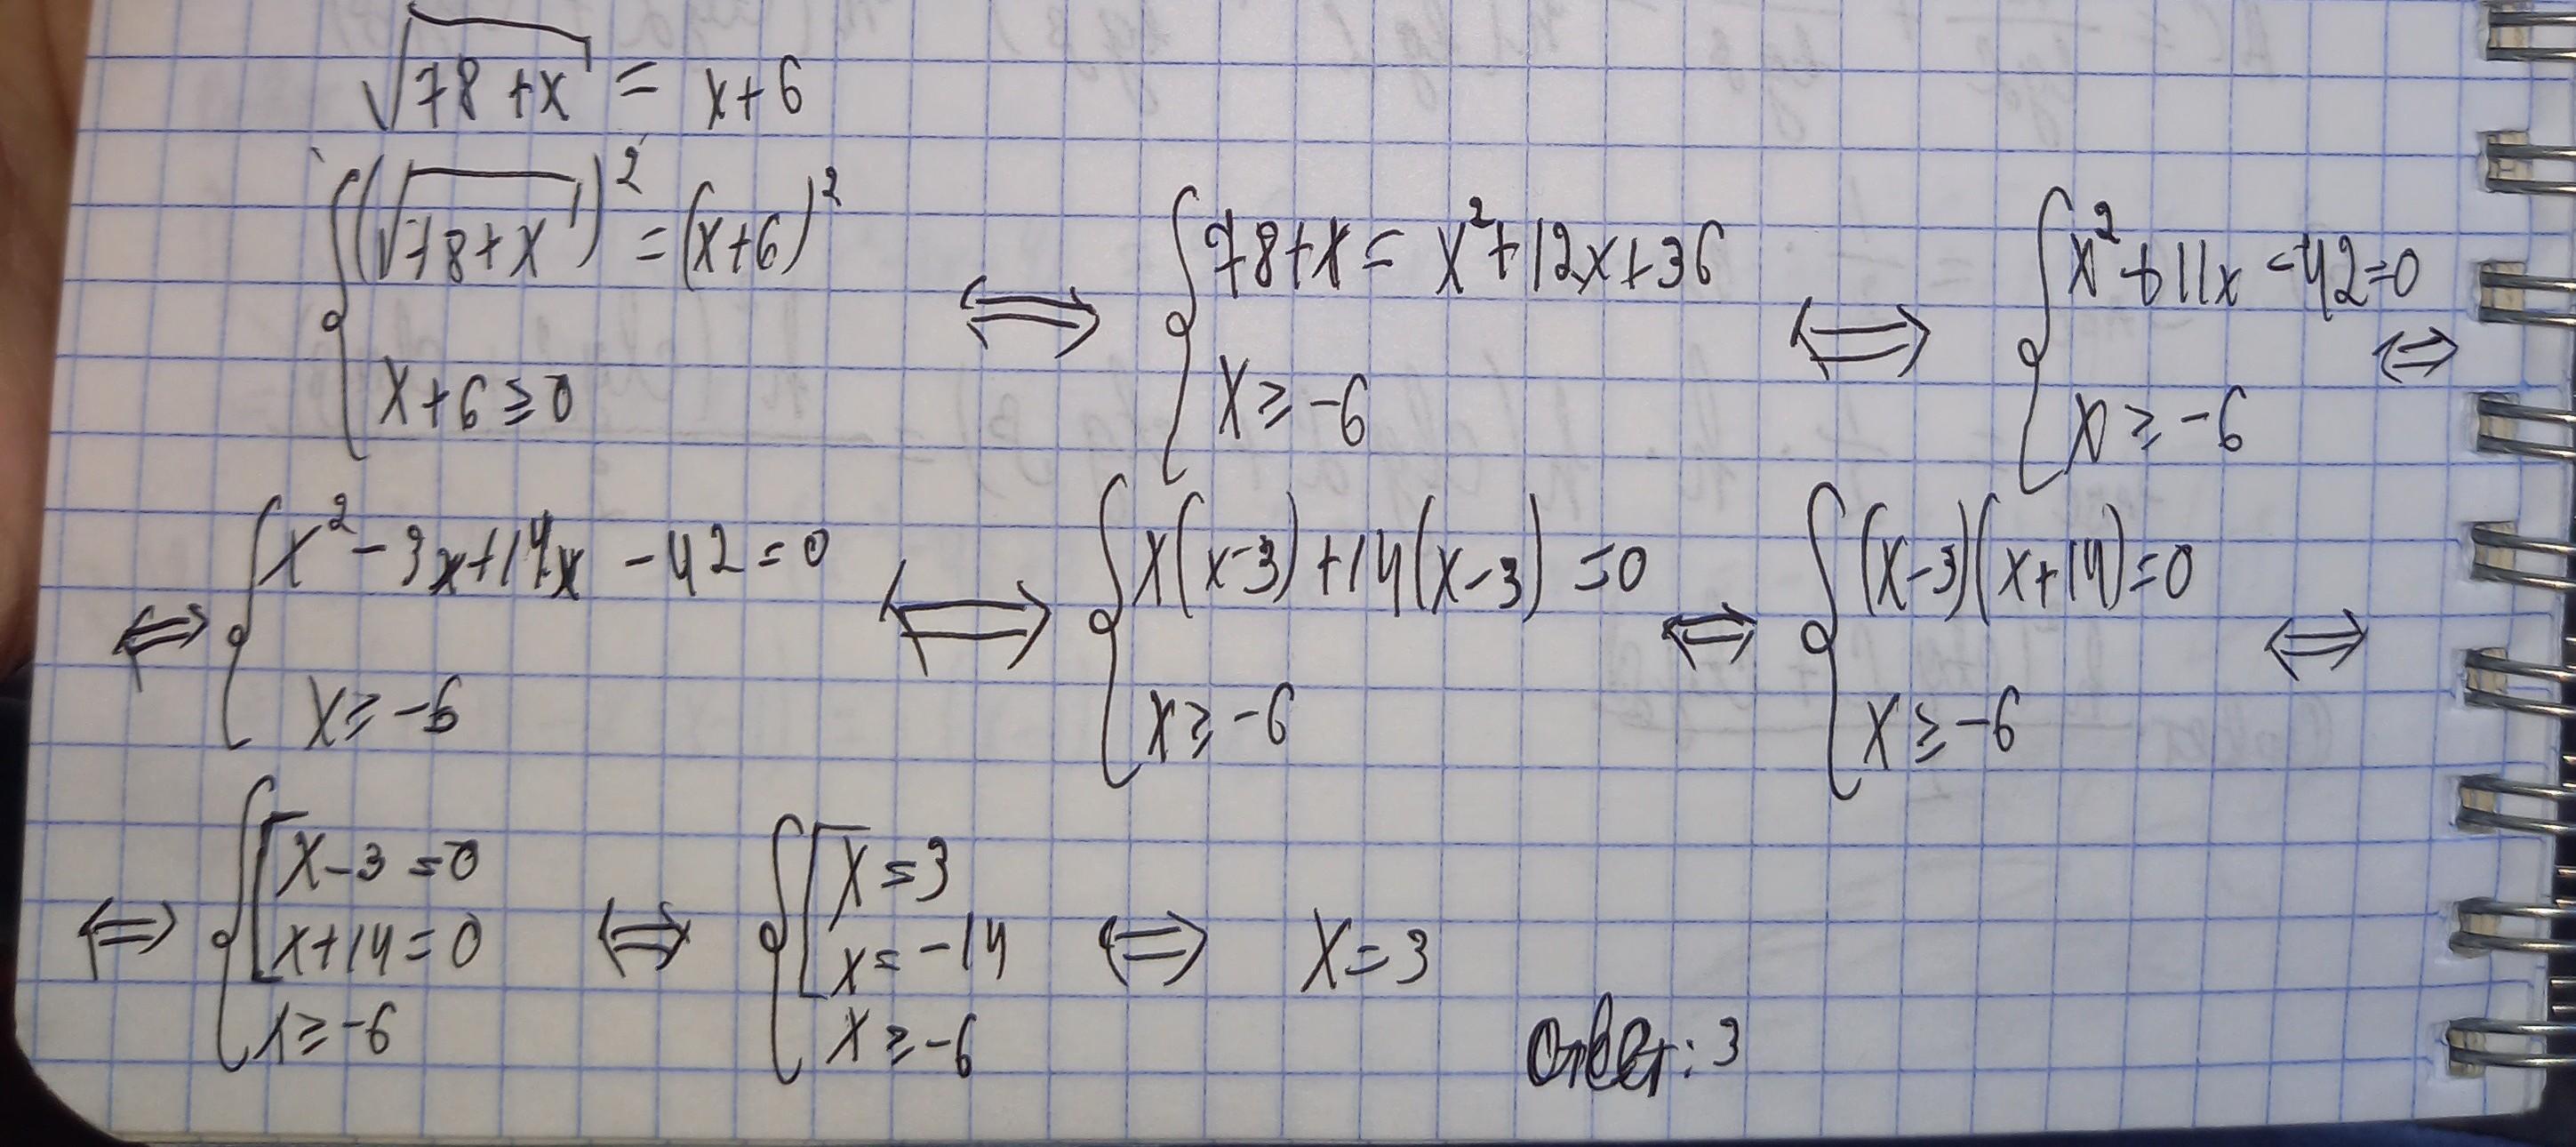 √78+x = x+6
{ (√78+x)² = (x+6)²
x+6 ≥ 0
⟺ { 78+x = x²+12x+36
x ≥ -6
⟺ { x²+11x-42=0
x ≥ -6
⟺
⟺ { x²-3x+14x-42=0
x ≥ -6
⟺ { x(x-3)+14(x-3)=0
x ≥ -6
⟺ { (x-3)(x+14)=0
x ≥ -6
⟺
⟺ { [ x-3=0
x+14=0
x ≥ -6
⟺ { [ x=3
x=-14
x ≥ -6
⟺ x=3
Ответ: 3